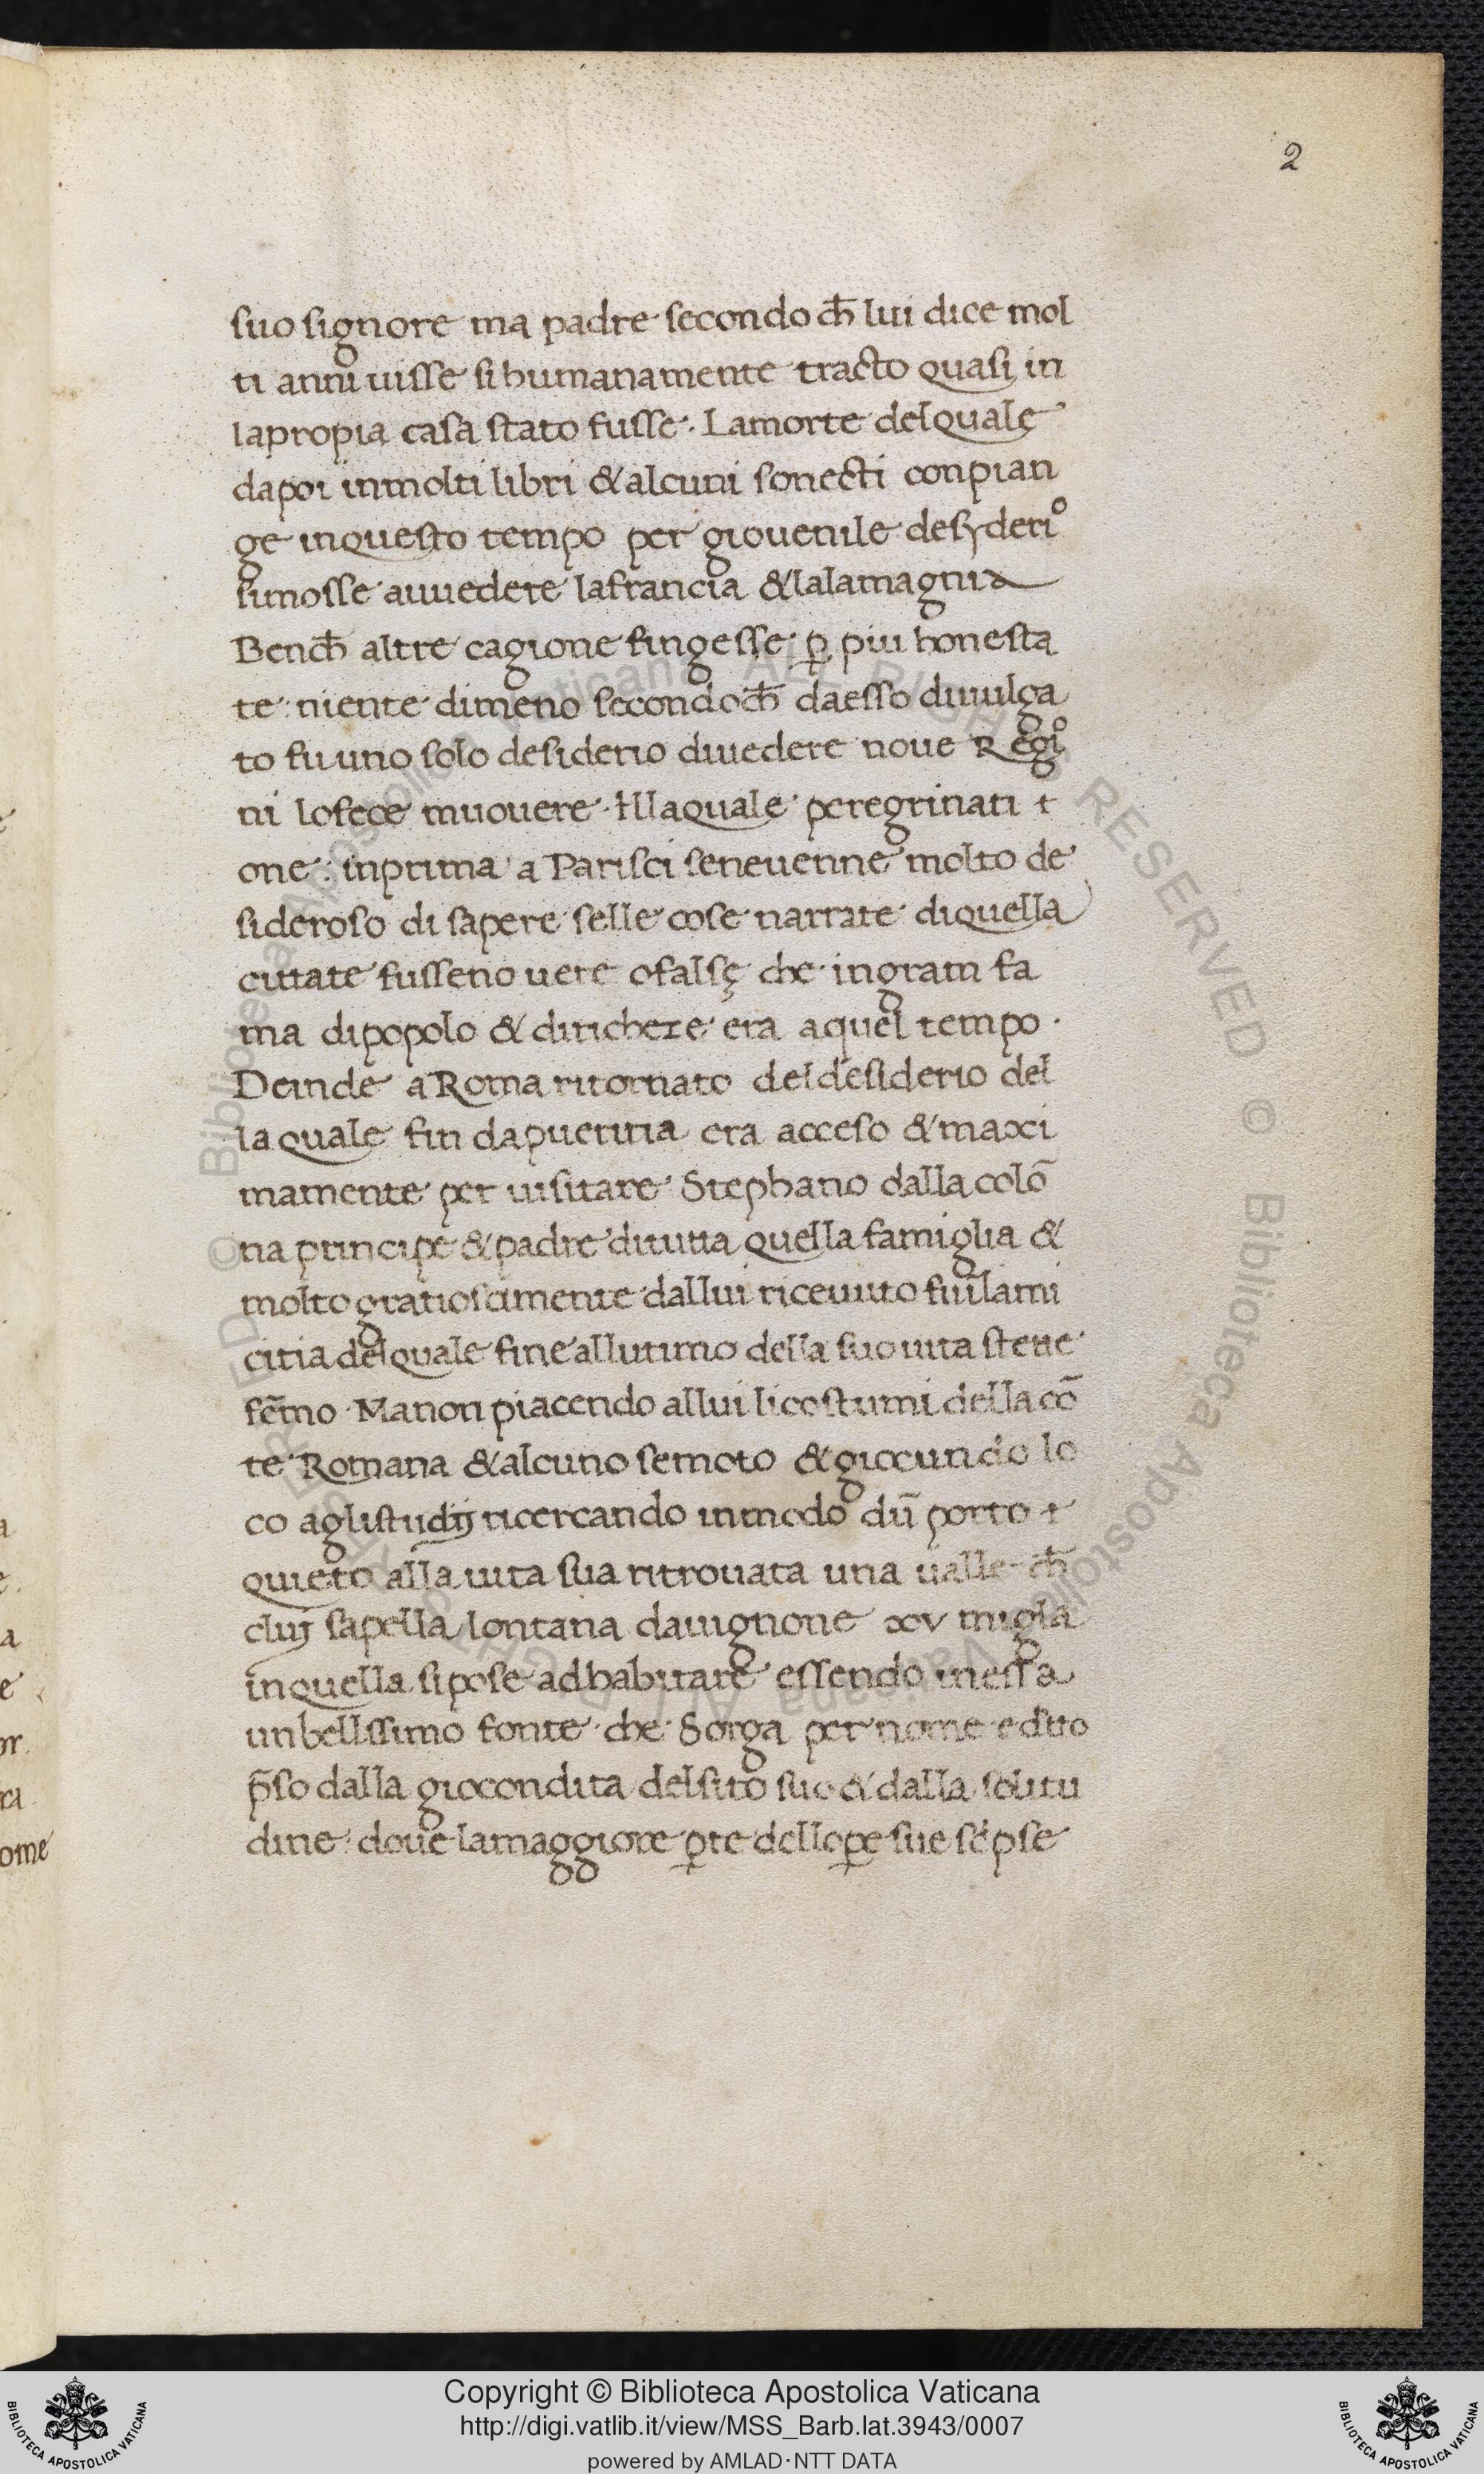 2
suo signore ma padre secondo ch̄ lui dice mol
ti anni uisse si humanamente tracto quasi in
lapropia casa stato fusse. Lamorte delquale
dapoi inmolti libri & alcuni sonecti conpian
ge inquesto tempo per giouenile desyderio
simosse auuedere lafrancia & lalamagnia
Bench̄ altre cagione fingesse ꝑ piu honesta
te: niente dimeno secondoch̄ daesso diuulga
to fu uno solo desiderio diuedere noue Regio
ni lofece muouere. Nllaquale peregrinati
one: inprima a Parisci seneuenne molto de
sideroso di sapere selle cose narrate diquella
cittate fusseno uere ofalsę che ingram fa
ma dipopolo & diricheze era aquel tempo.
Deinde a Roma ritornato deldesiderio del
laquale fin dapueritia era acceso & maxi
mamente per uisitare Stephano dalla colō
na principe & padre ditutta quella famiglia &
molto gratiosamente dallui riceuuto fu īlami
citia delquale fine allutimo della suo uita stette
fēmo Manon piacendo allui licostumi della cō
te Romana & alcuno semoto & giocundo lo
co aglistudij ricercando inmodo dū porto
quieto alla uita sua ritrouata una ualle ch̄
cluj sapella lontana dauignone xv miglia
inquella sipose adhabitare essendo inessa
unbellissimo fonte che Sorga per nome e dtto
p̄so dalla giocondita delsito suo & dalla solitu
dine: doue lamaggiore ꝑte delloꝑe sue sc̄pse
Copyright © Biblioteca Apostolica Vaticana
http://digi.vatlib.it/view/MSS_Barb.lat.3943/0007
powered by AMLAD·NTT DATA